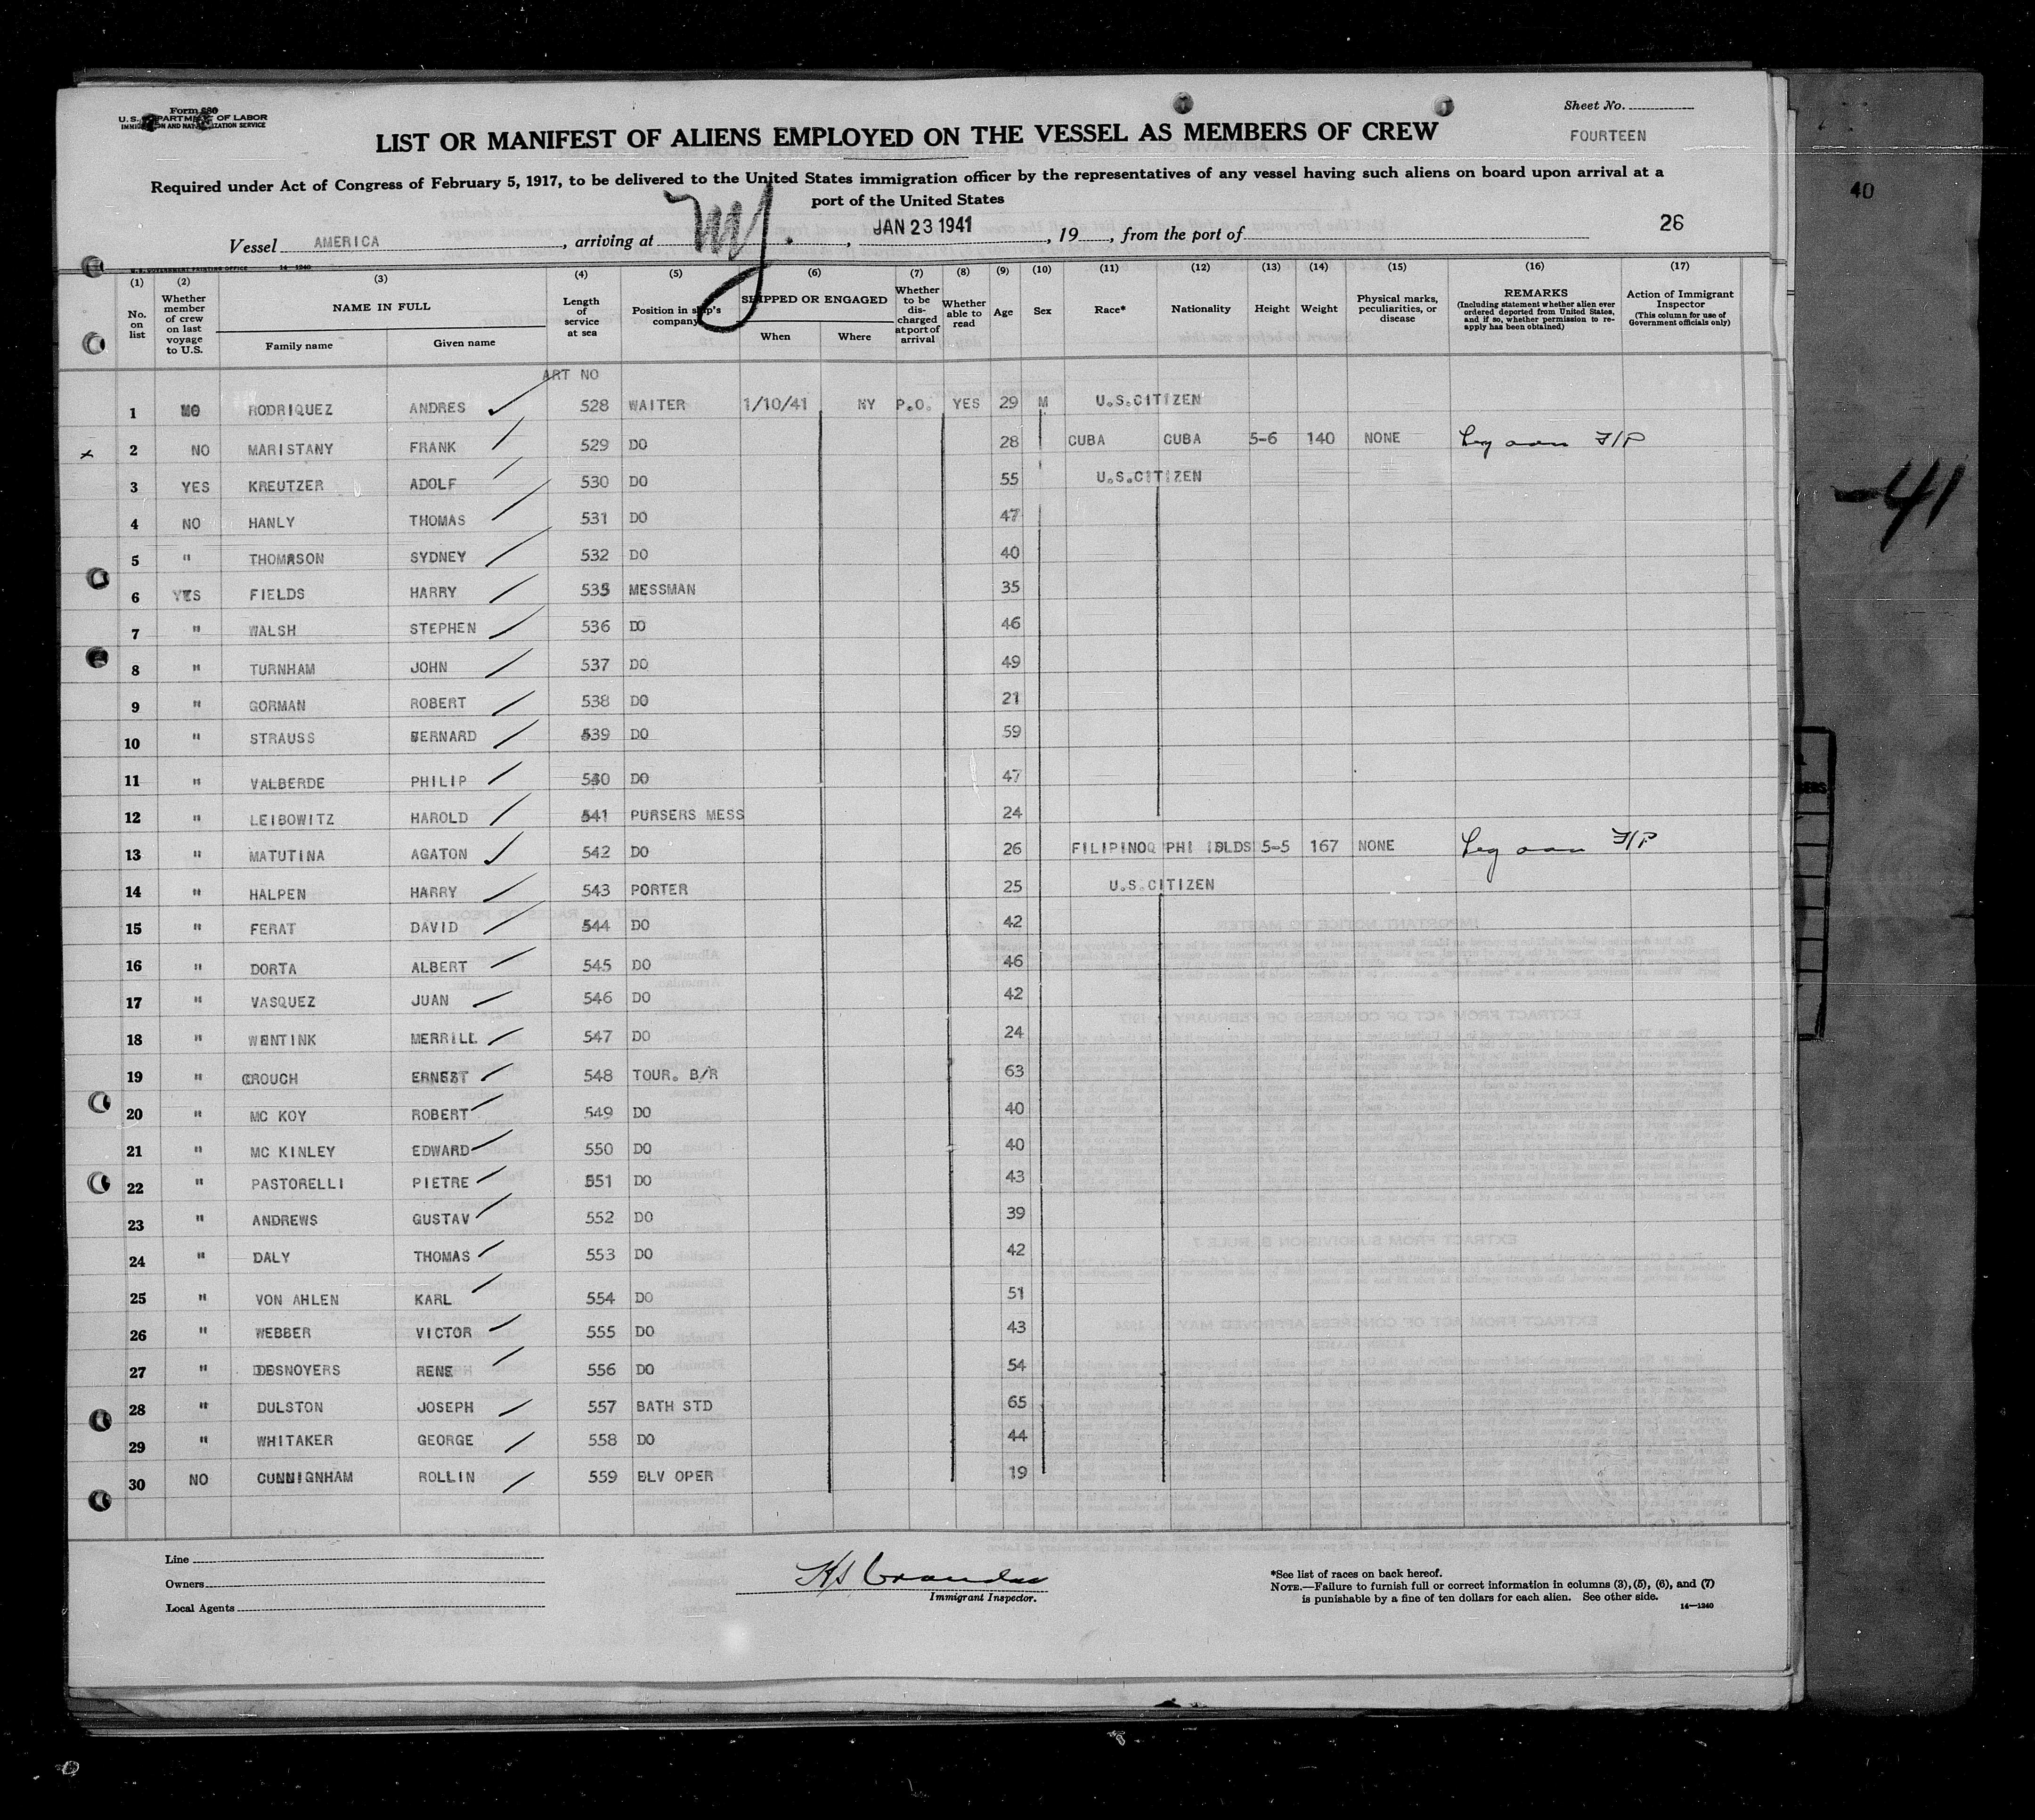 Form 680
U. S. DEPARTMENT OF LABOR
IMMIGRATION AND NATURALIZATION SERVICE
Sheet No.
FOURTEEN
LIST OR MANIFEST OF ALIENS EMPLOYED ON THE VESSEL AS MEMBERS OF CREW
Required under Act of Congress of February 5, 1917, to be delivered to the United States immigration officer by the representatives of any vessel having such aliens on board upon arrival at a
port of the United States
40
26
Vessel AMERICA, arriving at NY., JAN 23 1941, 19, from the port of
-41
U. S. GOVERNMENT PRINTING OFFICE 14-1240
(1) (2) (3) (4) (5) (6) (7) (8) (9) (10) (11) (12) (13) (14) (15) (16) (17)
No. on list
Whether member of crew on last voyage to U.S.
NAME IN FULL
Family name
Given name
Length of service at sea
Position in ship's company
SHIPPED OR ENGAGED
When
Where
Whether to be discharged at port of arrival
Whether able to read
Age
Sex
Race*
Nationality
Height
Weight
Physical marks, peculiarities, or disease
REMARKS
(Including statement whether alien ever ordered deported from United States, and if so, whether permission to reapply has been obtained)
Action of Immigrant Inspector
(This column for use of Government officials only)
ART NO
1 NO RODRIQUEZ ANDRES 528 WAITER 1/10/41 NY P.O. YES 29 M U.S.CITIZEN
x 2 NO MARISTANY FRANK 529 DO 28 CUBA CUBA 5-6 140 NONE
3 YES KREUTZER ADOLF 530 DO 55 U.S.CITIZEN
4 NO HANLY THOMAS 531 DO 47
5 " THOMRSON SYDNEY 532 DO 40
6 YES FIELDS HARRY 535 MESSMAN 35
7 " WALSH STEPHEN 536 DO 46
8 " TURNHAM JOHN 537 DO 49
9 " GORMAN ROBERT 538 DO 21
10 " STRAUSS BERNARD 539 DO 59
11 " VALBERDE PHILIP 540 DO 47
12 " LEIBOWITZ HAROLD 541 PURSERS MESS 24
13 " MATUTINA AGATON 542 DO 26 FILIPINOQ PHI IDLDS 5-5 167 NONE
14 " HALPEN HARRY 543 PORTER 25 U.S.CITIZEN
15 " FERAT DAVID 544 DO 42
16 " DORTA ALBERT 545 DO 46
17 " VASQUEZ JUAN 546 DO 42
18 " WENTINK MERRILL 547 DO 24
19 " CROUCH ERNEST 548 TOUR. B/R 63
20 " MC KOY ROBERT 549 DO 40
21 " MC KINLEY EDWARD 550 DO 40
22 " PASTORELLI PIETRE 551 DO 43
23 " ANDREWS GUSTAV 552 DO 39
24 " DALY THOMAS 553 DO 42
25 " VON AHLEN KARL 554 DO 51
26 " WEBBER VICTOR 555 DO 43
27 " DESNOYERS RENE 556 DO 54
28 " DULSTON JOSEPH 557 BATH STD 65
29 " WHITAKER GEORGE 558 DO 44
30 NO CUNNIGNHAM ROLLIN 559 ELV OPER 19
Line
Owners
Local Agents
Immigrant Inspector.
*See list of races on back hereof.
NOTE.—Failure to furnish full or correct information in columns (3), (5), (6), and (7)
is punishable by a fine of ten dollars for each alien. See other side.
14—1240